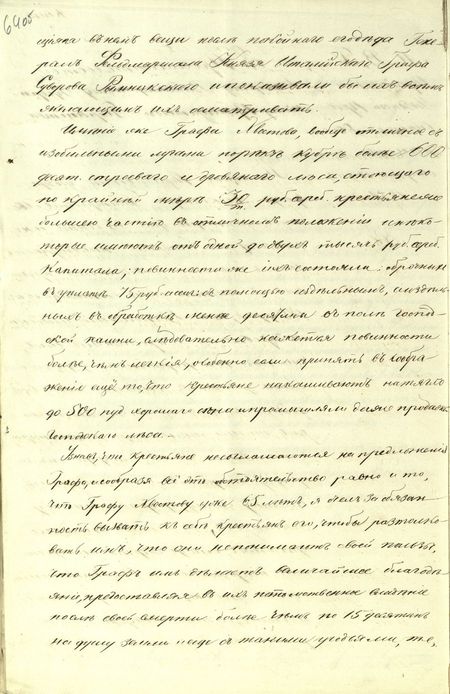 6405
щіяся въ немъ вещи после покойнаго его дѣда Гене
ралъ Фельдмаршала Князя Италійскаго Графа
Суворова Рымникскаго и показывали бы ихъ всѣмъ
желающимъ ихъ осматривать.
Имѣніе же Графа Хвостова, вообще отлично съ
изобильными лугами порядкъ будетъ болѣе 600
десят. строеваго и дровянаго лѣса, стоющаго
по крайней мѣрѣ 30 руб. сереб. крестьяне же
большею частію въ отличномъ положеніи и нѣко
торые имѣютъ отъ одной до двухъ тысячъ руб. сереб.
Капитала; повинности же ихъ состояли: оброчныхъ
въ уплатѣ 75 руб. ассиг: съ помощію издѣльнымъ, а издѣль
ныхъ въ обработкѣ менѣе десятины въ полѣ господ
ской пашни, слѣдовательно кажется повинности
болѣе, чѣмъ легкія, особенно если принять въ сообра
женіе ещё то, что крестьяне накашиваютъ на тягло
до 500 пуд. хорошаго сѣна и промышляли также продажею
Господскаго лѣса.
Узнавъ, что крестьяне не соглашаются на предложеніе
Графа, и сообразя всѣ эти обстоятельства равно и то,
что Графу Хвостову уже 65 лѣтъ, я счелъ за обязан
ность вызвать къ себѣ крестьянъ его, чтобы растолко
вать имъ, что они не понимаютъ своей пользы,
что Графъ имъ дѣлаетъ величайшее благодѣ
яніе, предоставляя въ ихъ потомственное владѣніе
послѣ своей смерти болѣе чѣмъ по 15 десятинъ
на душу земли и еще съ такими угодьями, т.е.,